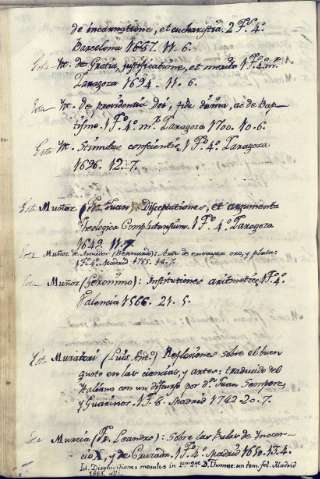 de incarnatione, et eucharistia. 2 Tº. 4º.
Barcelona 1687. 11. 6.
Yt. de Gratia, justificatione, et merito 1 Tº. 4º. mº.
Zaragoza 1694. 11. 6.
Yt. de providentia Dei, fide divina, ac de Bap
tismo. 1 Tº. 4º. mº. Zaragoza 1700. 10. 6.
Yt. Stimulus conscientiæ 1 Tº. 4º. Zaragoza
1696. 12. 7.
Muñoz (Fr. Juan) Disceptationes, et argumenta
Theologica Complutensium. 1 Tº. 4º. Zaragoza
1649. 11. 7.
Muñoz de Amador (Bernardo): Arte de ensayar oro, y plata:
1 Tº. 4º. Madrid 1755.
Muñoz (Geronimo): Institutiones aritmeticæ 1 Tº. 4º.
Valencia 1566. 21. 5.
Muratori (Luis Antº.) Reflexiones sobre el buen
gusto en las ciencias, y artes: traducido del
Italiano con un discurso por Dn. Juan Sempere,
y Guarinos. 1 Tº. 8. Madrid 1782. 20. 7.
Murcia (Fr. Leandro): Sobre las Bulas de Inocen-
cio X, y de Cruzada. 1 Tº. 4. Madrid 1650. 13. 4.
Id. Disquisitiones morales in D. Thomæ. un tom. fol. Madrid